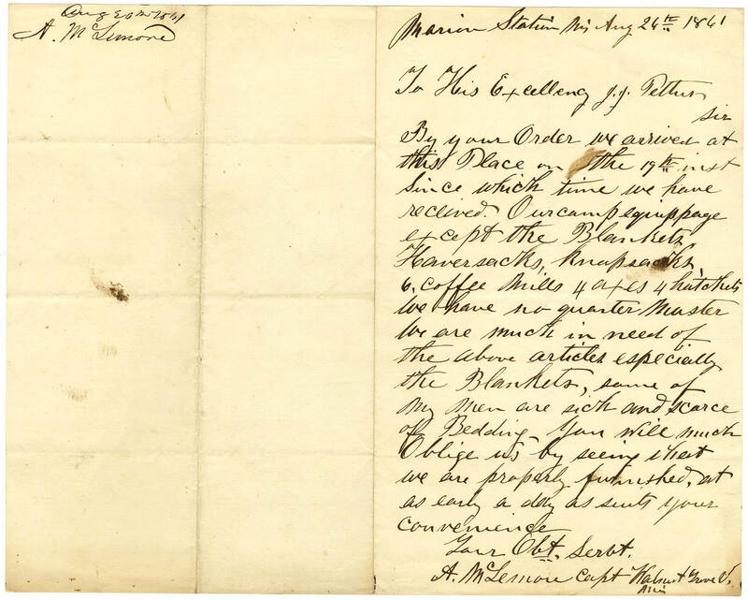 Aug
A. McLemore
Marion Station Mis Aug 26th 1861
To His Excellency J.J. Pettus
Sir
By your Order we arrived at
this Place on the 19th inst
since which time we have
recieved. Our camp equippage
except the Blankets
Haversacks, knapsacks,
6, coffee Mills 4 axes 4 hatchets
We have no quarter Master
We are much in need of
the above articles especially
the Blankets, some of
My Men are sick and scarce
of Bedding You will much
Oblige us by seeing that
we are properly furnished, at
as early a day as suits your
convenience
Your Obt. Servt.
A. McLemore Capt Walnut Grove
Mis